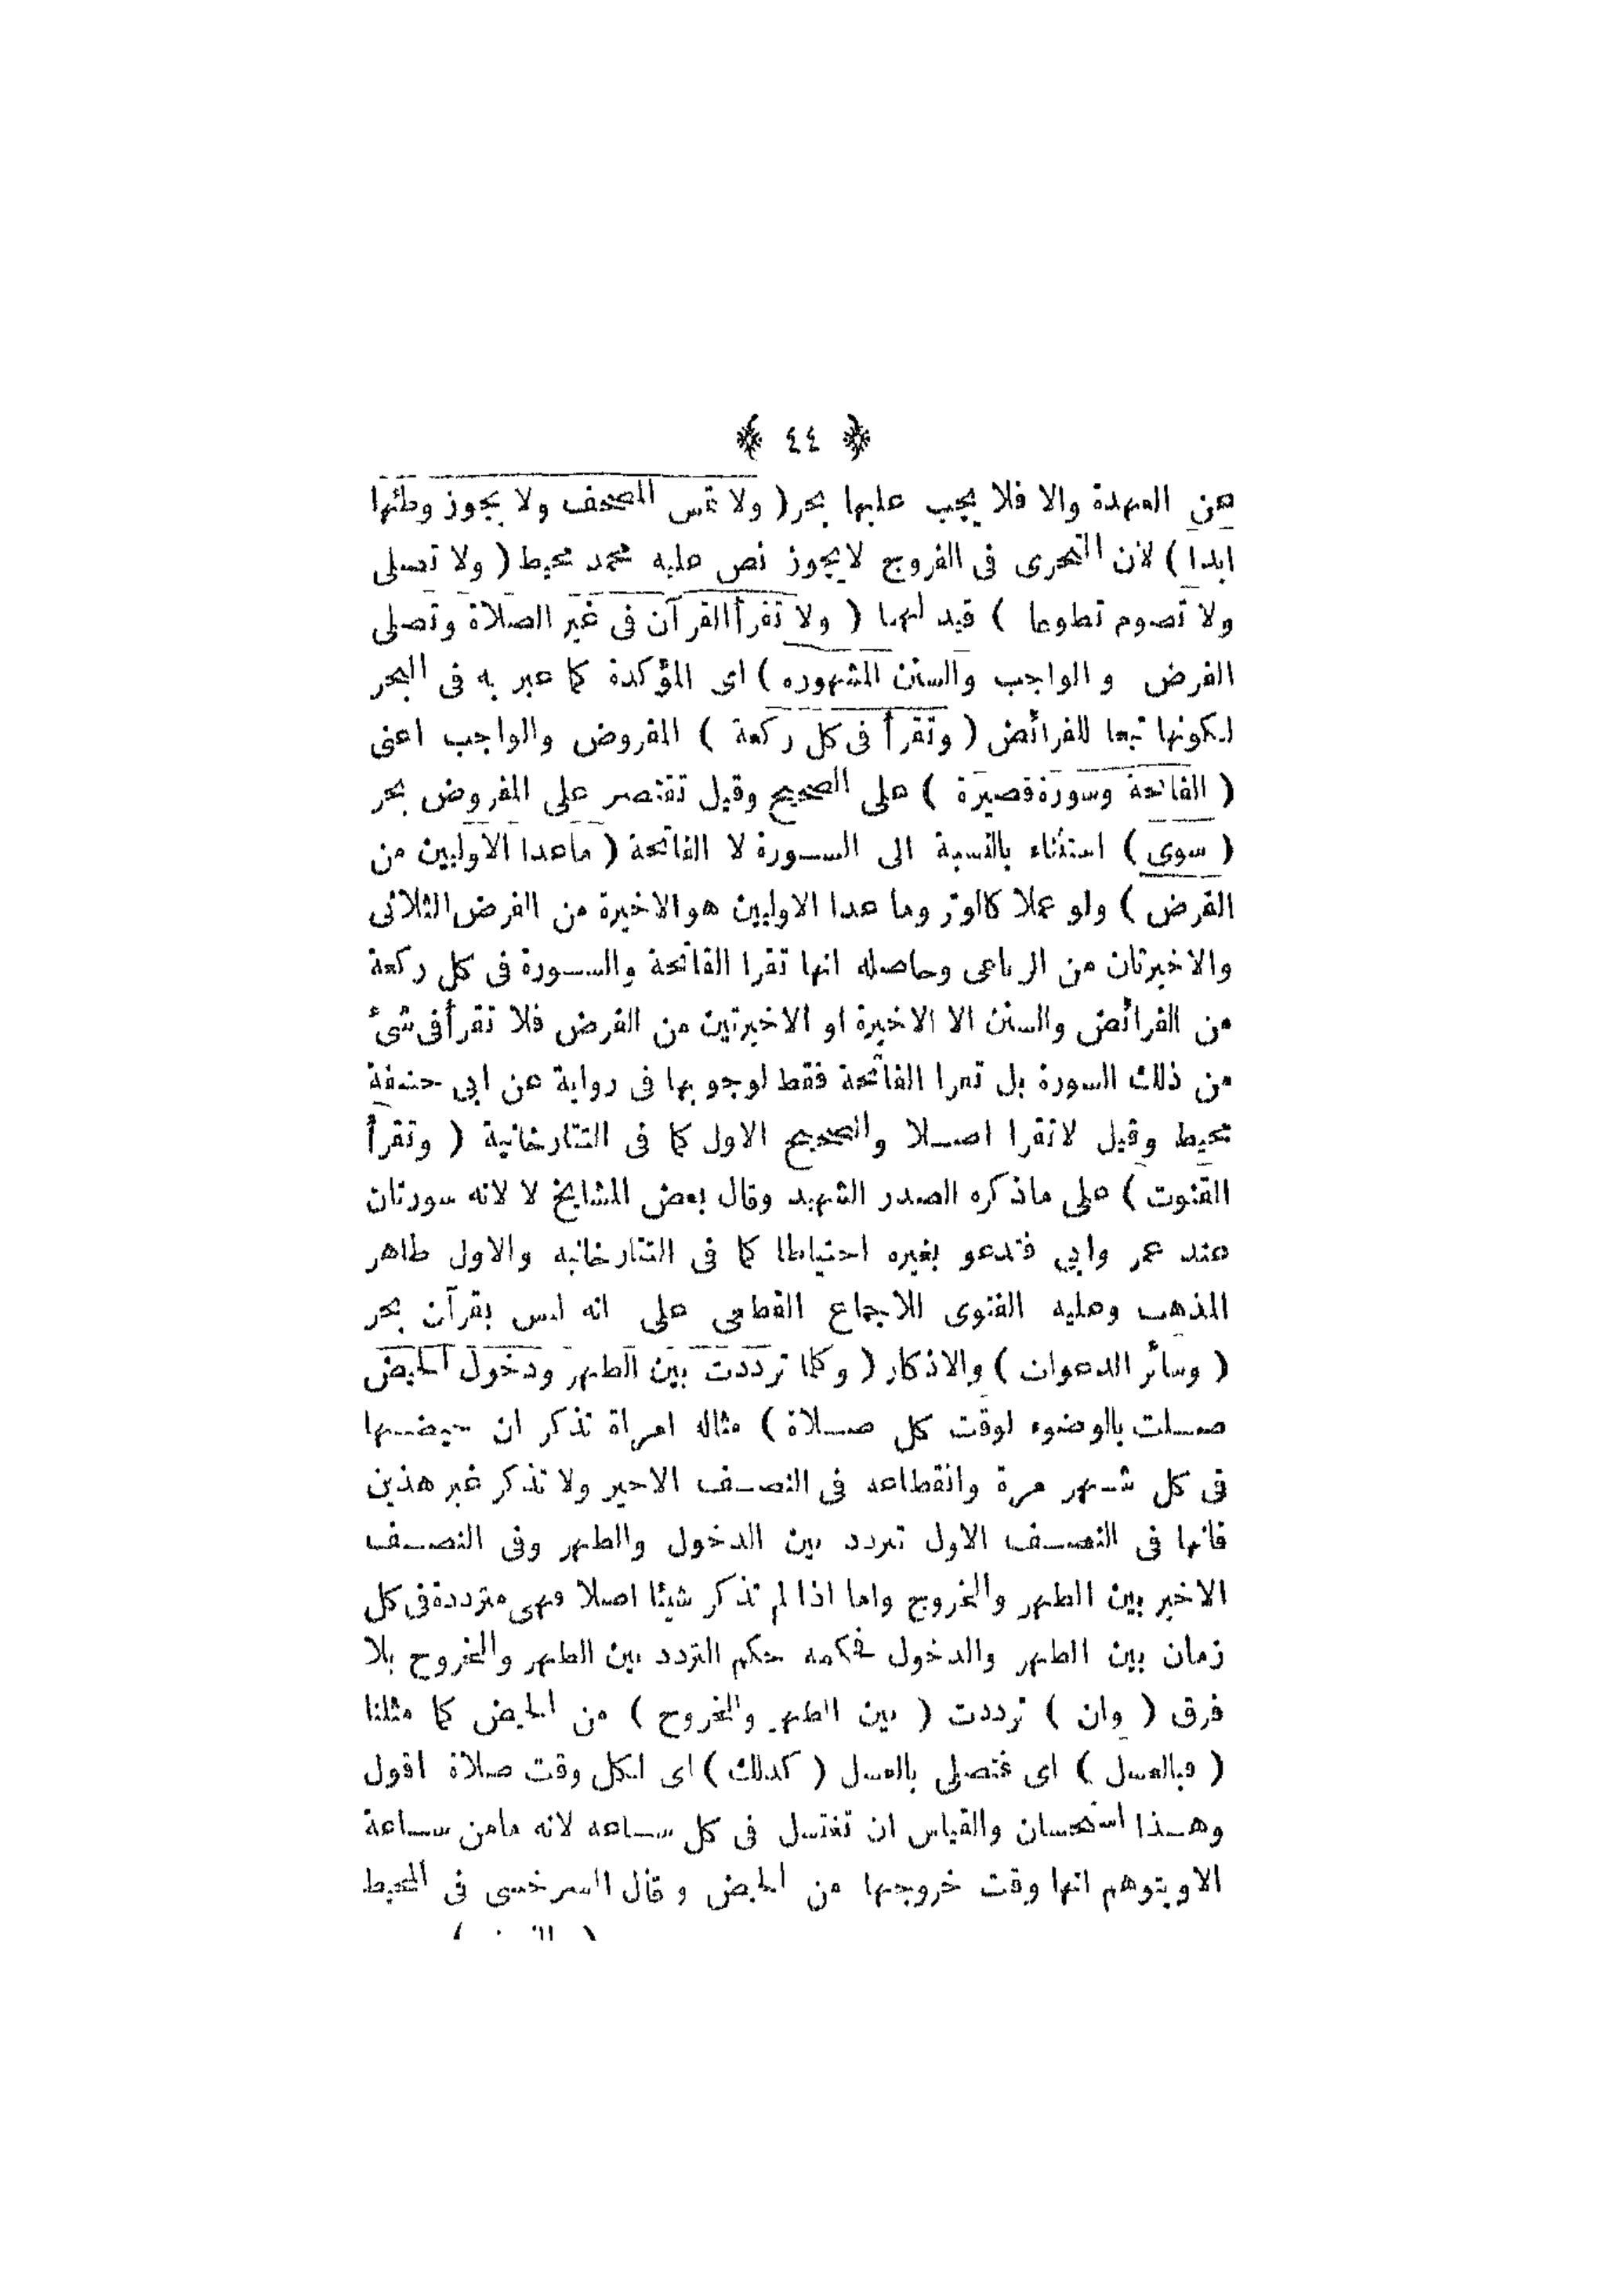 ﴿ ٤٤ ﴾
عن العهدة والا فلا يجب عليها بحر ( ولا تمس المصحف ولا يجوز وطئها
ابدا ) لان التحرى فى الفروج لايجوز نص عليه محمد محيط ( ولا تصلى
ولا تصوم تطوعا ) قيد لهما ( ولا تقرأ القرآن فى غير الصلاة وتصلى
الفرض والواجب والسنن المشهوره ) اى المؤكدة كما عبر به فى البحر
لكونها تبعا للفرائض ( وتقرأ فى كل ركعة ) المفروض والواجب اعنى
( الفاتحة وسورة قصيرة ) على الصحيح وقيل تقتصر على المفروض بحر
( سوى ) استثناء بالنسبة الى السورة لا الفاتحة ( ماعدا الاوليين من
الفرض ) ولو عملا كالوتر وما عدا الاوليين هو الاخيرة من الفرض الثلاثى
والاخيرتان من الرباعى وحاصله انها تقرا الفاتحة والسورة فى كل ركعة
من الفرائض والسنن الا الاخيرة او الاخيرتين من الفرض فلا تقرأ فى شئ
من ذلك السورة بل تقرا الفاتحة فقط لوجوبها فى رواية عن ابى حنيفة
محيط وقيل لاتقرا اصلا والصحيح الاول كما فى التتارخانية ( وتقرأ
القنوت ) على ماذكره الصدر الشهيد وقال بعض المشايخ لا لانه سورتان
عند عمر وابي فتدعو بغيره احتياطا كما فى التتارخانيه والاول ظاهر
المذهب وعليه الفتوى للاجماع القطعى على انه ليس بقرآن بحر
( وسائر الدعوات ) والاذكار ( وكلما ترددت بين الطهر ودخول الحيض
صلت بالوضوء لوقت كل صلاة ) مثاله امرأة تذكر ان حيضها
فى كل شهر مرة وانقطاعه فى النصف الاخير ولا تذكر غير هذين
فانها فى النصف الاول تتردد بين الدخول والطهر وفى النصف
الاخير بين الطهر والخروج واما اذا لم تذكر شيئا اصلا فهى مترددة فى كل
زمان بين الطهر والدخول فحكمه حكم التردد بين الطهر والخروج بلا
فرق ( وان ) ترددت ( بين الطهر والخروج ) من الحيض كما مثلنا
( فبالغسل ) اى فتصلى بالغسل ( كذلك ) اى لكل وقت صلاة اقول
وهذا استحسان والقياس ان تغتسل فى كل ساعه لانه مامن ساعة
الاويتوهم انها وقت خروجها من الحيض وقال السرخسى فى المحيط